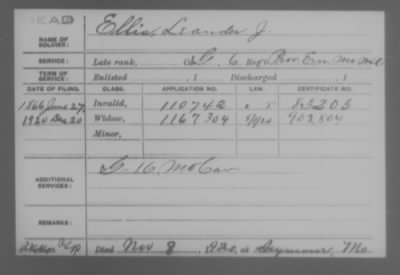 DEAD
NAME OF SOLDIER: Ellis, Leander J.
SERVICE: Late rank, Co. G, 6 Reg't Prov. En. Mo. Mil.
TERM OF SERVICE: Enlisted , 1 Discharged , 1
DATE OF FILING. CLASS. APPLICATION NO. LAW. CERTIFICATE NO.
1866 June 27 Invalid, 110742 83203
1920 Dec 20 Widow, 1167304 902804
Minor,
ADDITIONAL SERVICES: G. 16, Mo Cav.
REMARKS:
Died Nov 8, 1920, at Seymour, Mo.